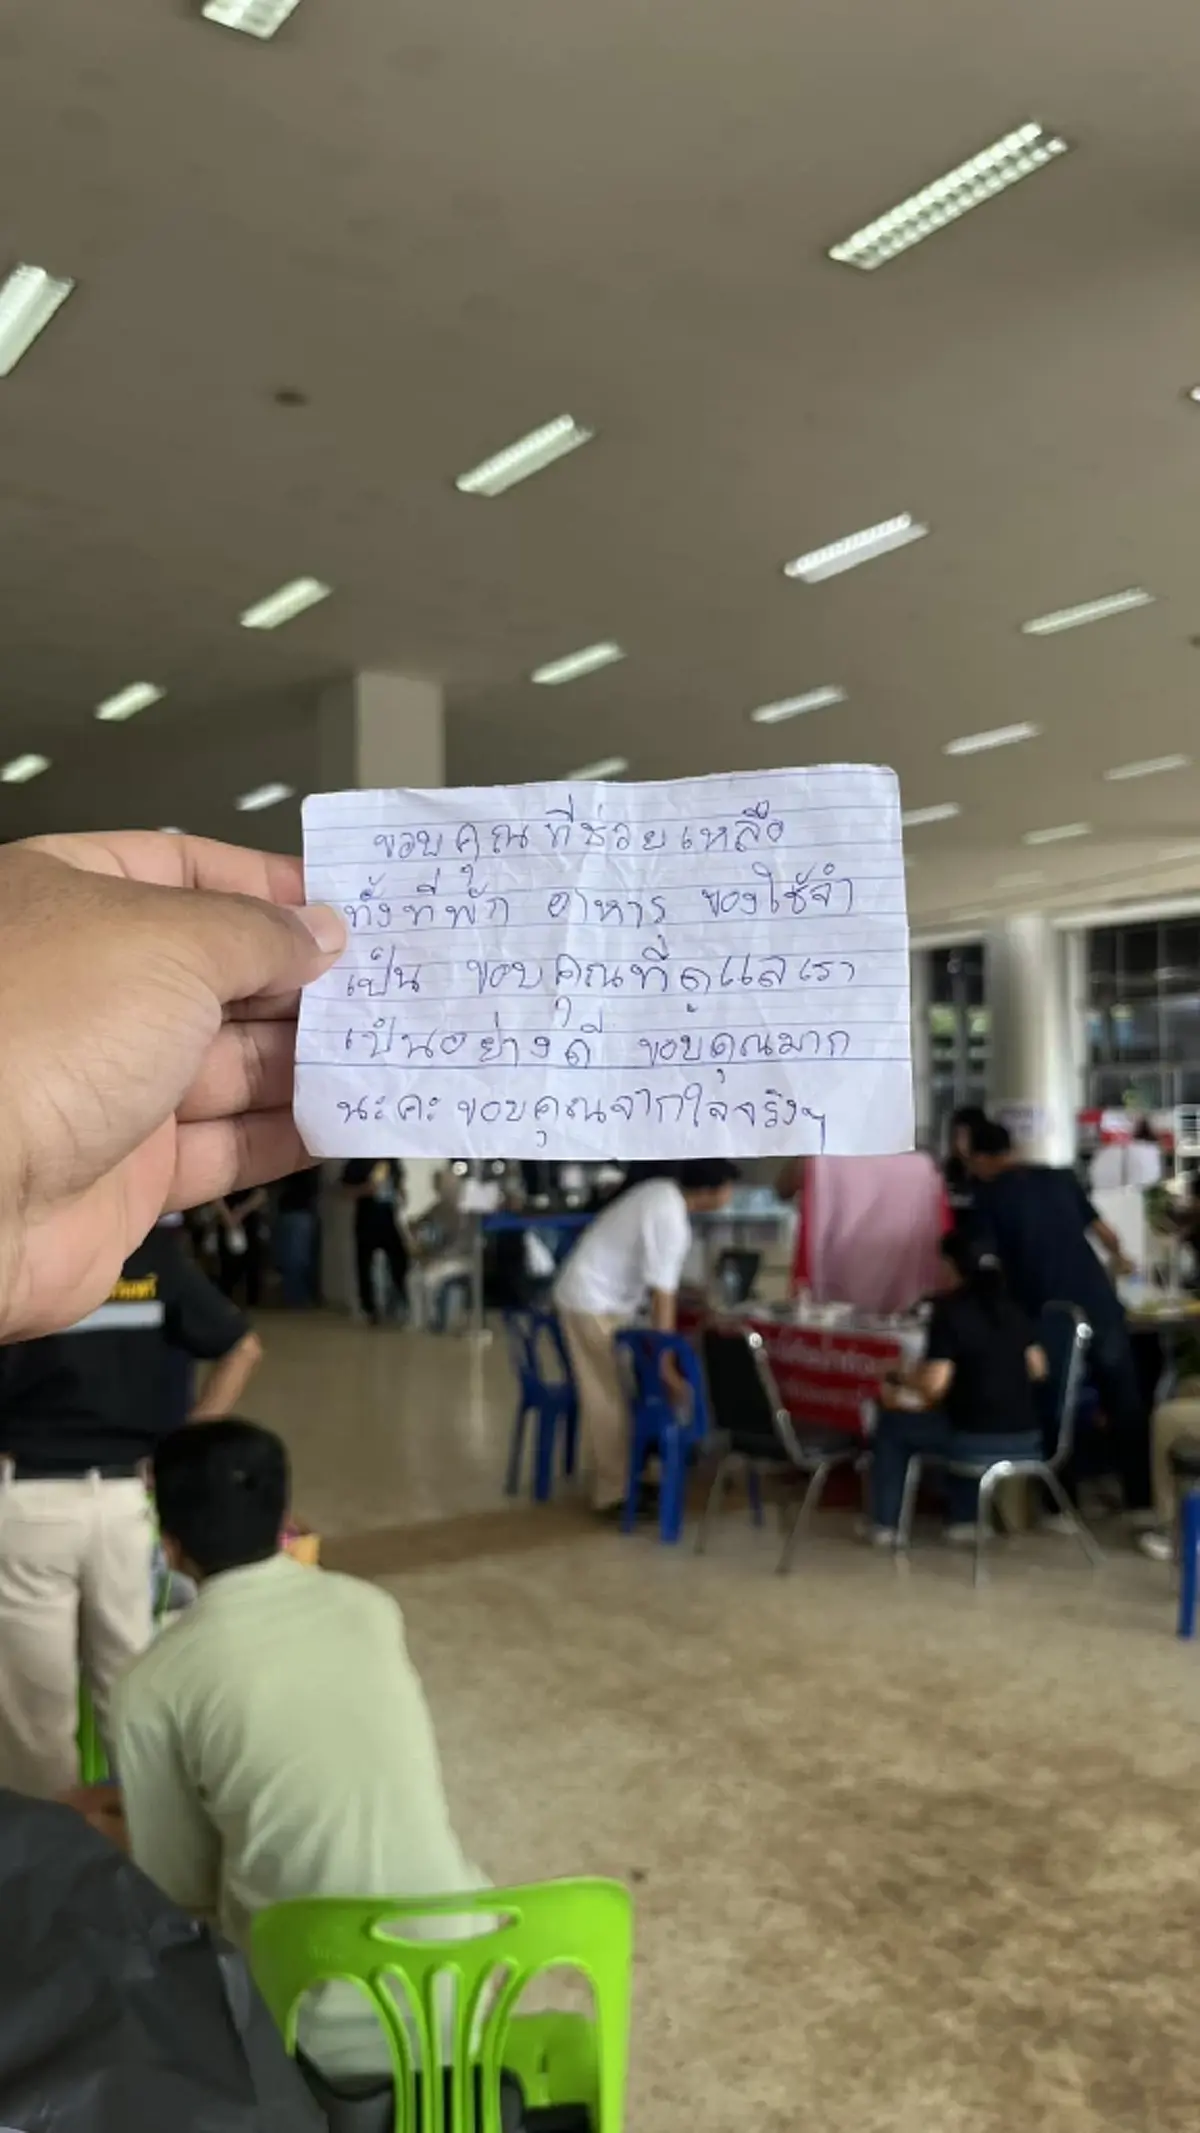 ขอบคุณที่ช่วยเหลือ
ทั้งที่พัก อาหาร ของใช้จำ
เป็น ขอบคุณที่ดูแลเรา
เป็นอย่างดี ขอบคุณมาก
นะคะ ขอบคุณจากใจจริงๆ